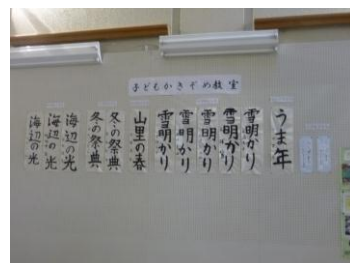 子どもかきぞめ教室
うま年
雪明かり
雪明かり
雪明かり
雪明かり
雪明かり
山里の春
冬の祭典
冬の祭典
海辺の光
海辺の光
海辺の光